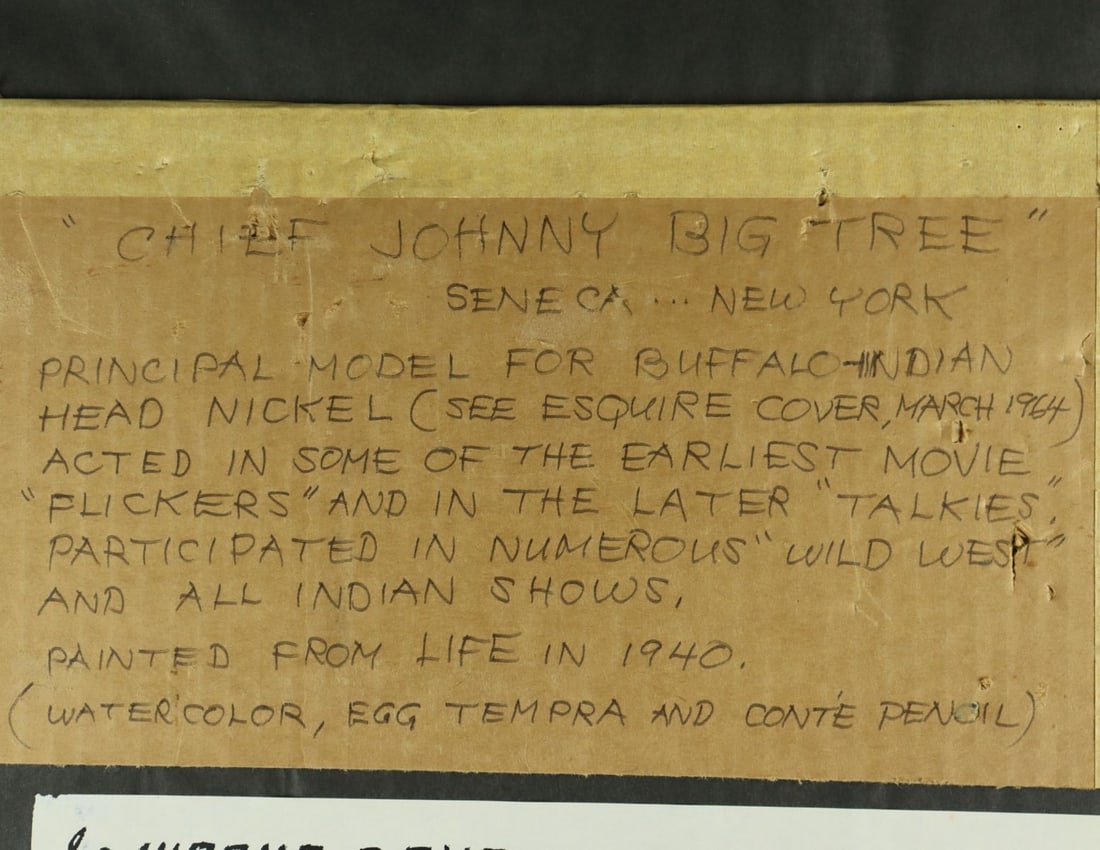 "CHIEF JOHNNY BIG TREE"
SENECA ... NEW YORK
PRINCIPAL MODEL FOR BUFFALO-INDIAN
HEAD NICKEL (SEE ESQUIRE COVER, MARCH 1964)
ACTED IN SOME OF THE EARLIEST MOVIE
"FLICKERS" AND IN THE LATER "TALKIES".
PARTICIPATED IN NUMEROUS "WILD WEST"
AND ALL INDIAN SHOWS,
PAINTED FROM LIFE IN 1940.
(WATERCOLOR, EGG TEMPRA AND CONTÉ PENCIL)